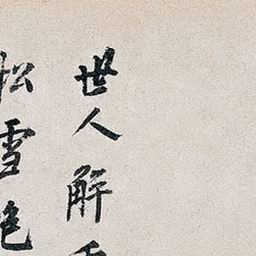 世人解
松雪色